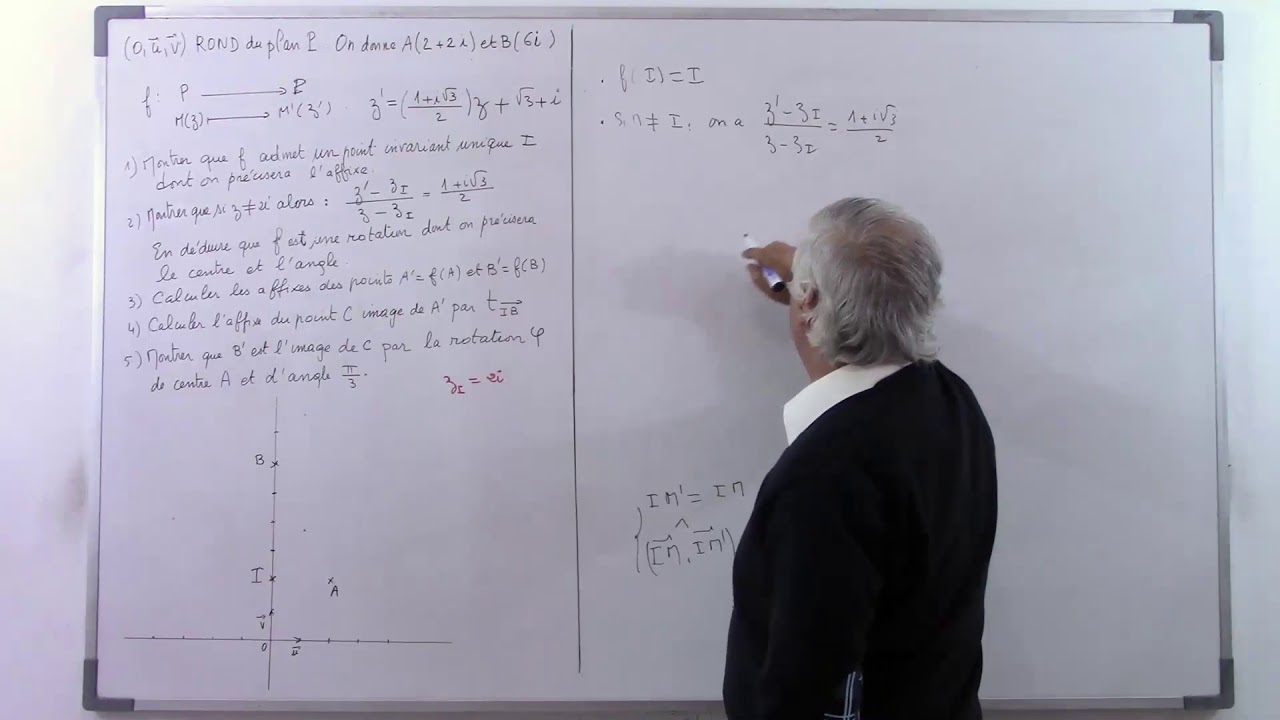 (O,u⃗,v⃗) ROND du plan P. On donne A(2+2i) et B(6i)
f: P ⟶ P
M(z) ⟼ M'(z') z' = ((1+i√3)/2)z + √3+i
1) Montrer que f admet un point invariant unique I
dont on précisera l'affixe.
2) Montrer que si z≠2i alors : (z'-z_I)/(z-z_I) = (1+i√3)/2
En déduire que f est une rotation dont on précisera
le centre et l'angle.
3) Calculer les affixes des points A'=f(A) et B'=f(B)
4) Calculer l'affixe du point C image de A' par t_IB⃗
5) Montrer que B' est l'image de C par la rotation φ
de centre A et d'angle π/3.
z_I = 2i
B
I
A
v⃗
O
u⃗
• f(I) = I
• Si M≠I, on a (z'-z_I)/(z-z_I) = (1+i√3)/2
IM' = IM
(IM⃗, IM'⃗)